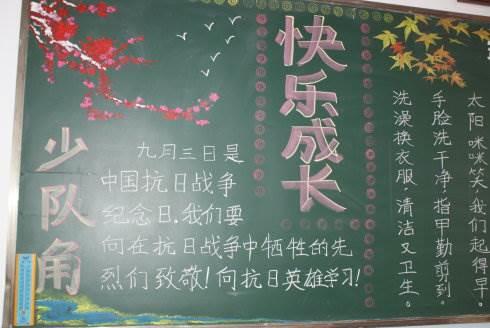 快乐成长
少队角
九月三日是
中国抗日战争
纪念日.我们要
向在抗日战争中牺牲的先
烈们致敬!向抗日英雄学习!
太阳咪咪笑,我们起得早。
手脸洗干净,指甲勤剪到。
洗澡换衣服,清洁又卫生。